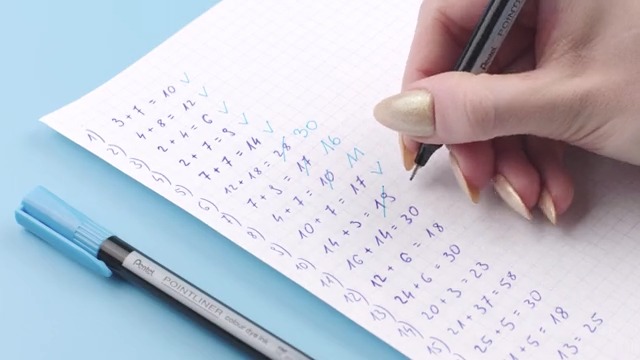 1) 3 + 7 = 10 ✓
2) 4 + 8 = 12 ✓
3) 2 + 4 = 6 ✓
4) 2 + 7 = 9 ✓
5) 7 + 7 = 14 ✓
6) 12 + 18 = 28 30
7) 7 + 9 = 17 16
8) 4 + 7 = 10 11
9) 10 + 7 = 17 ✓
10) 14 + 9 = 19
11) 16 + 14 = 30
12) 12 + 6 = 18
13) 24 + 6 = 30
14) 20 + 3 = 23
15) 21 + 37 = 58
25 + 5 = 30
+ 5 = 18
3 = 25
Pentel POINTLINER colour dye ink
Pentel POINTLINER